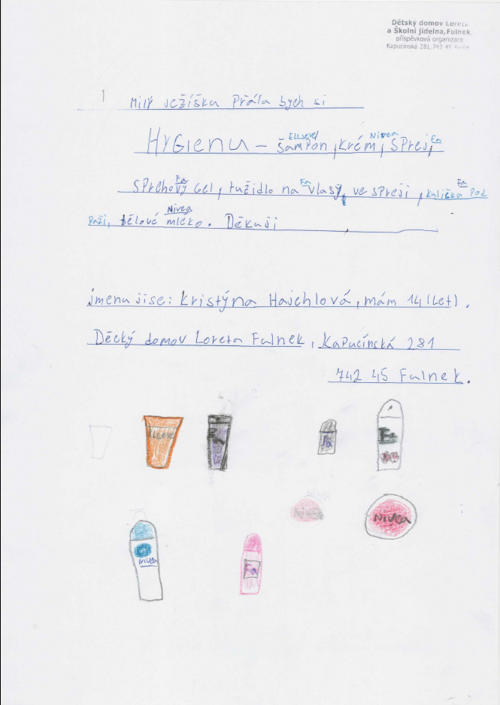 Dětský domov Loreta
a Školní jídelna, Fulnek,
příspěvková organizace
Kapucínská 281, 742 45 Fulnek
1 Milý Ježíšku Přála bych si
Elseve Nivea Fa
HYGIENU – šampon, Krém, SPrej,
Fa Fa Fa
SPrchový Gel, tužidlo na vlasy, ve spreji, kulička Pod
Nivea
Paži, tělové mléko. Děkuji
jmenuji se: Kristýna Hajchlová, mám 14 (let).
Děcký domov Loreta Fulnek, Kapucínská 281
742 45 Fulnek.
Fa
Fa
Fa
Nivea
Nivea
Nivea
Fa